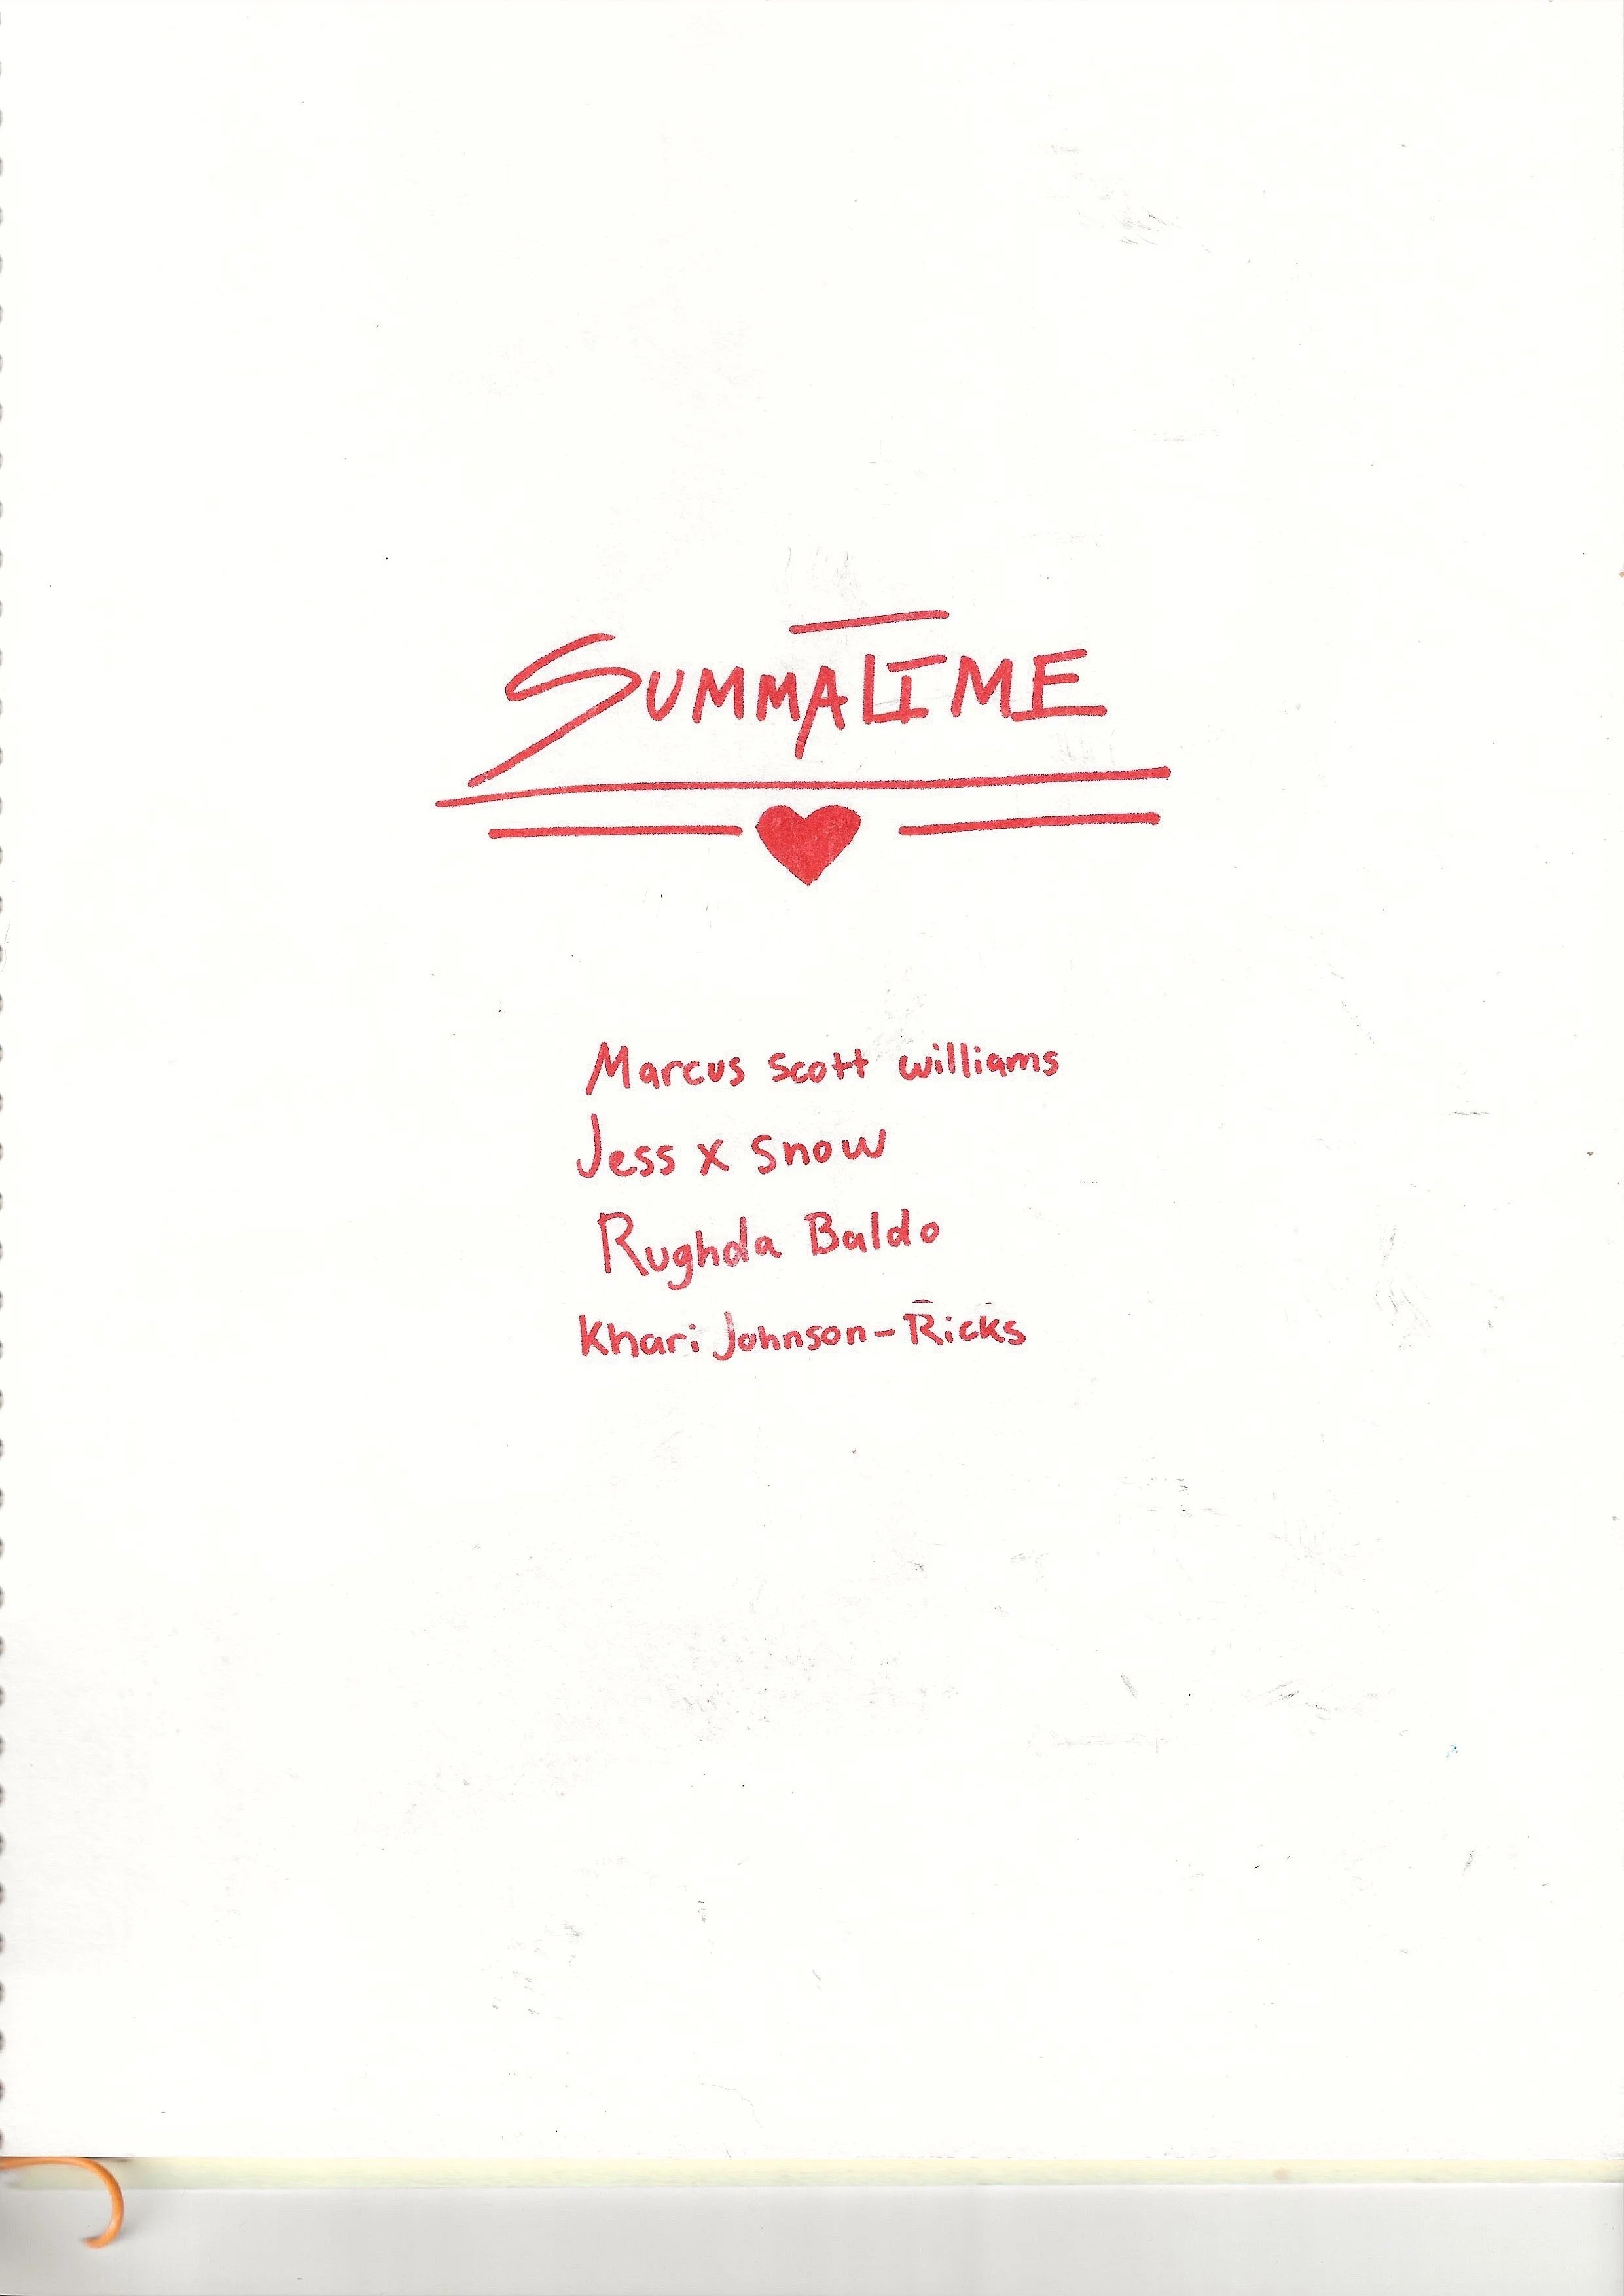 SUMMATIME
Marcus Scott Williams
Jess x Snow
Rughda Baldo
Khari Johnson-Ricks